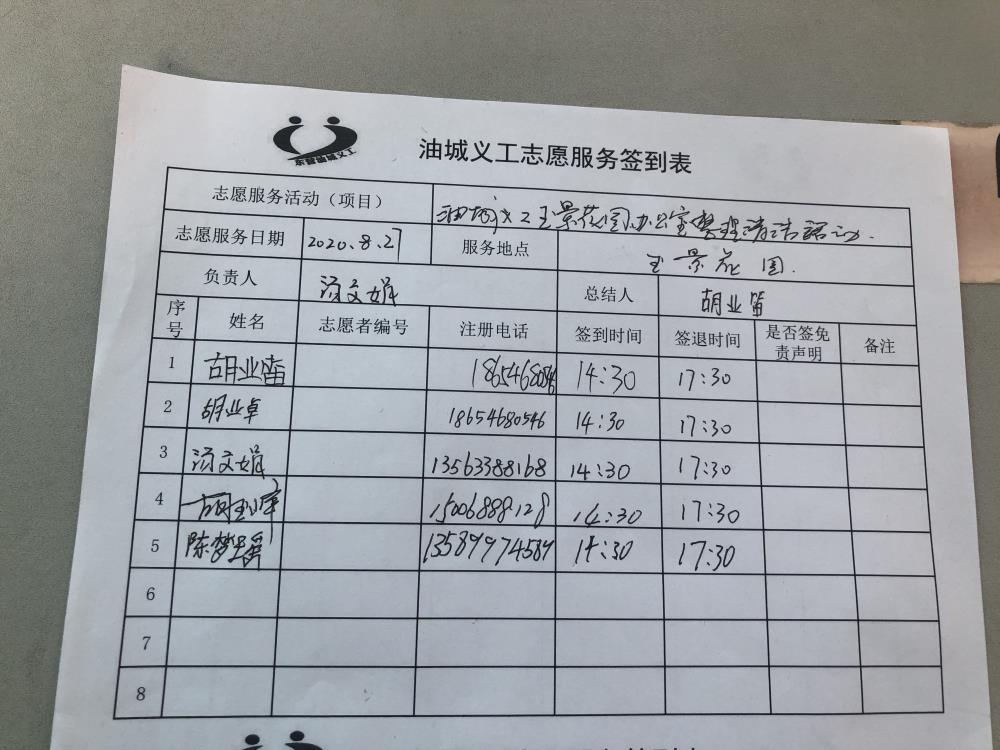 东营油城义工
油城义工志愿服务签到表
志愿服务活动（项目） 油城义工玉景花园办公室整理清洁活动.
志愿服务日期 2020.8.27 服务地点 玉景花园.
负责人 汤文娟 总结人 胡业笛
序号 姓名 志愿者编号 注册电话 签到时间 签退时间 是否签免责声明 备注
1 胡业笛 18654680546 14:30 17:30
2 胡业卓 18654680546 14:30 17:30
3 汤文娟 13563388168 14:30 17:30
4 15006888128 14:30 17:30
5 陈梦瑶 13589974589 14:30 17:30
6
7
8